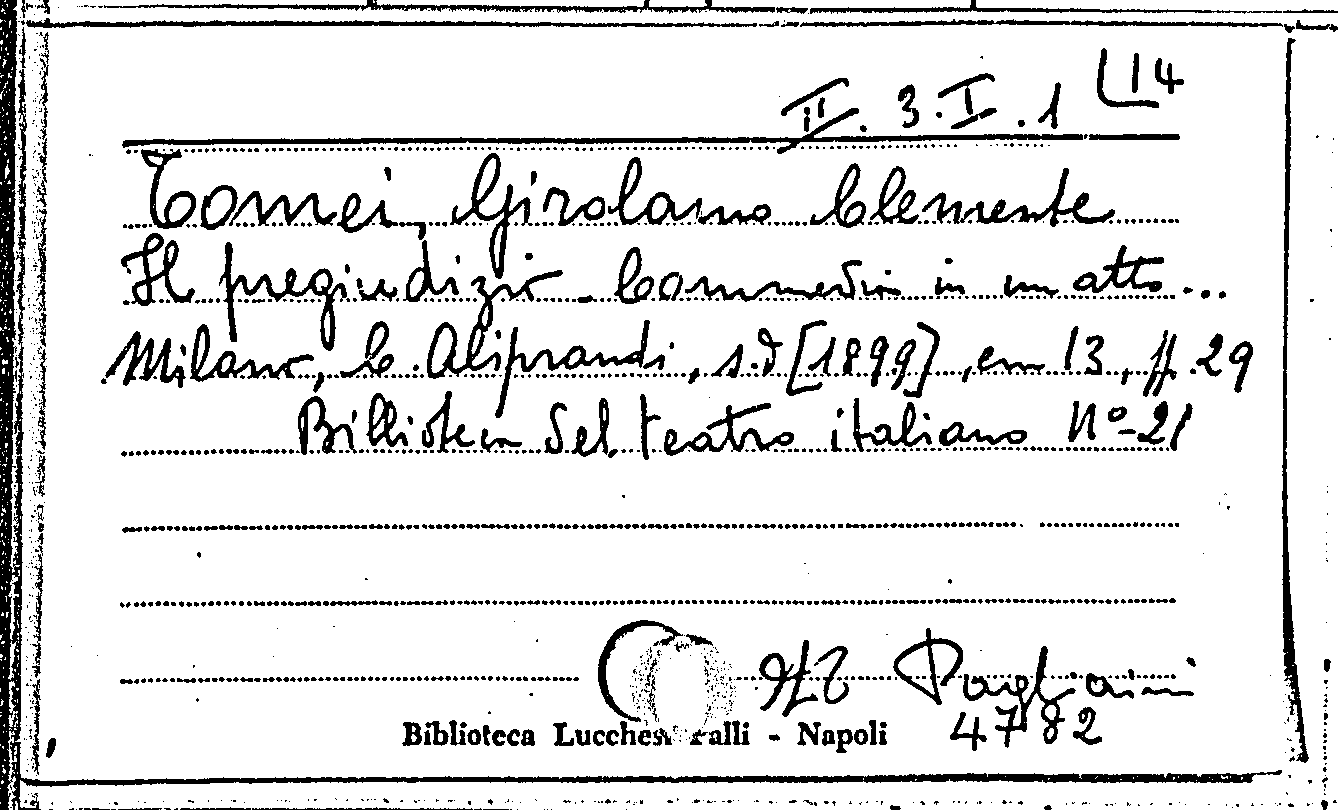 II. 3. I. 1 L14
Tomei, Girolamo Clemente
Il pregiudizio - Commedia in un atto...
Milano, C. Aliprandi, s.d [1899], cm 13, pp. 29
Biblioteca del teatro italiano N°-21
Pagliaini
4782
Biblioteca Lucchesi Palli - Napoli